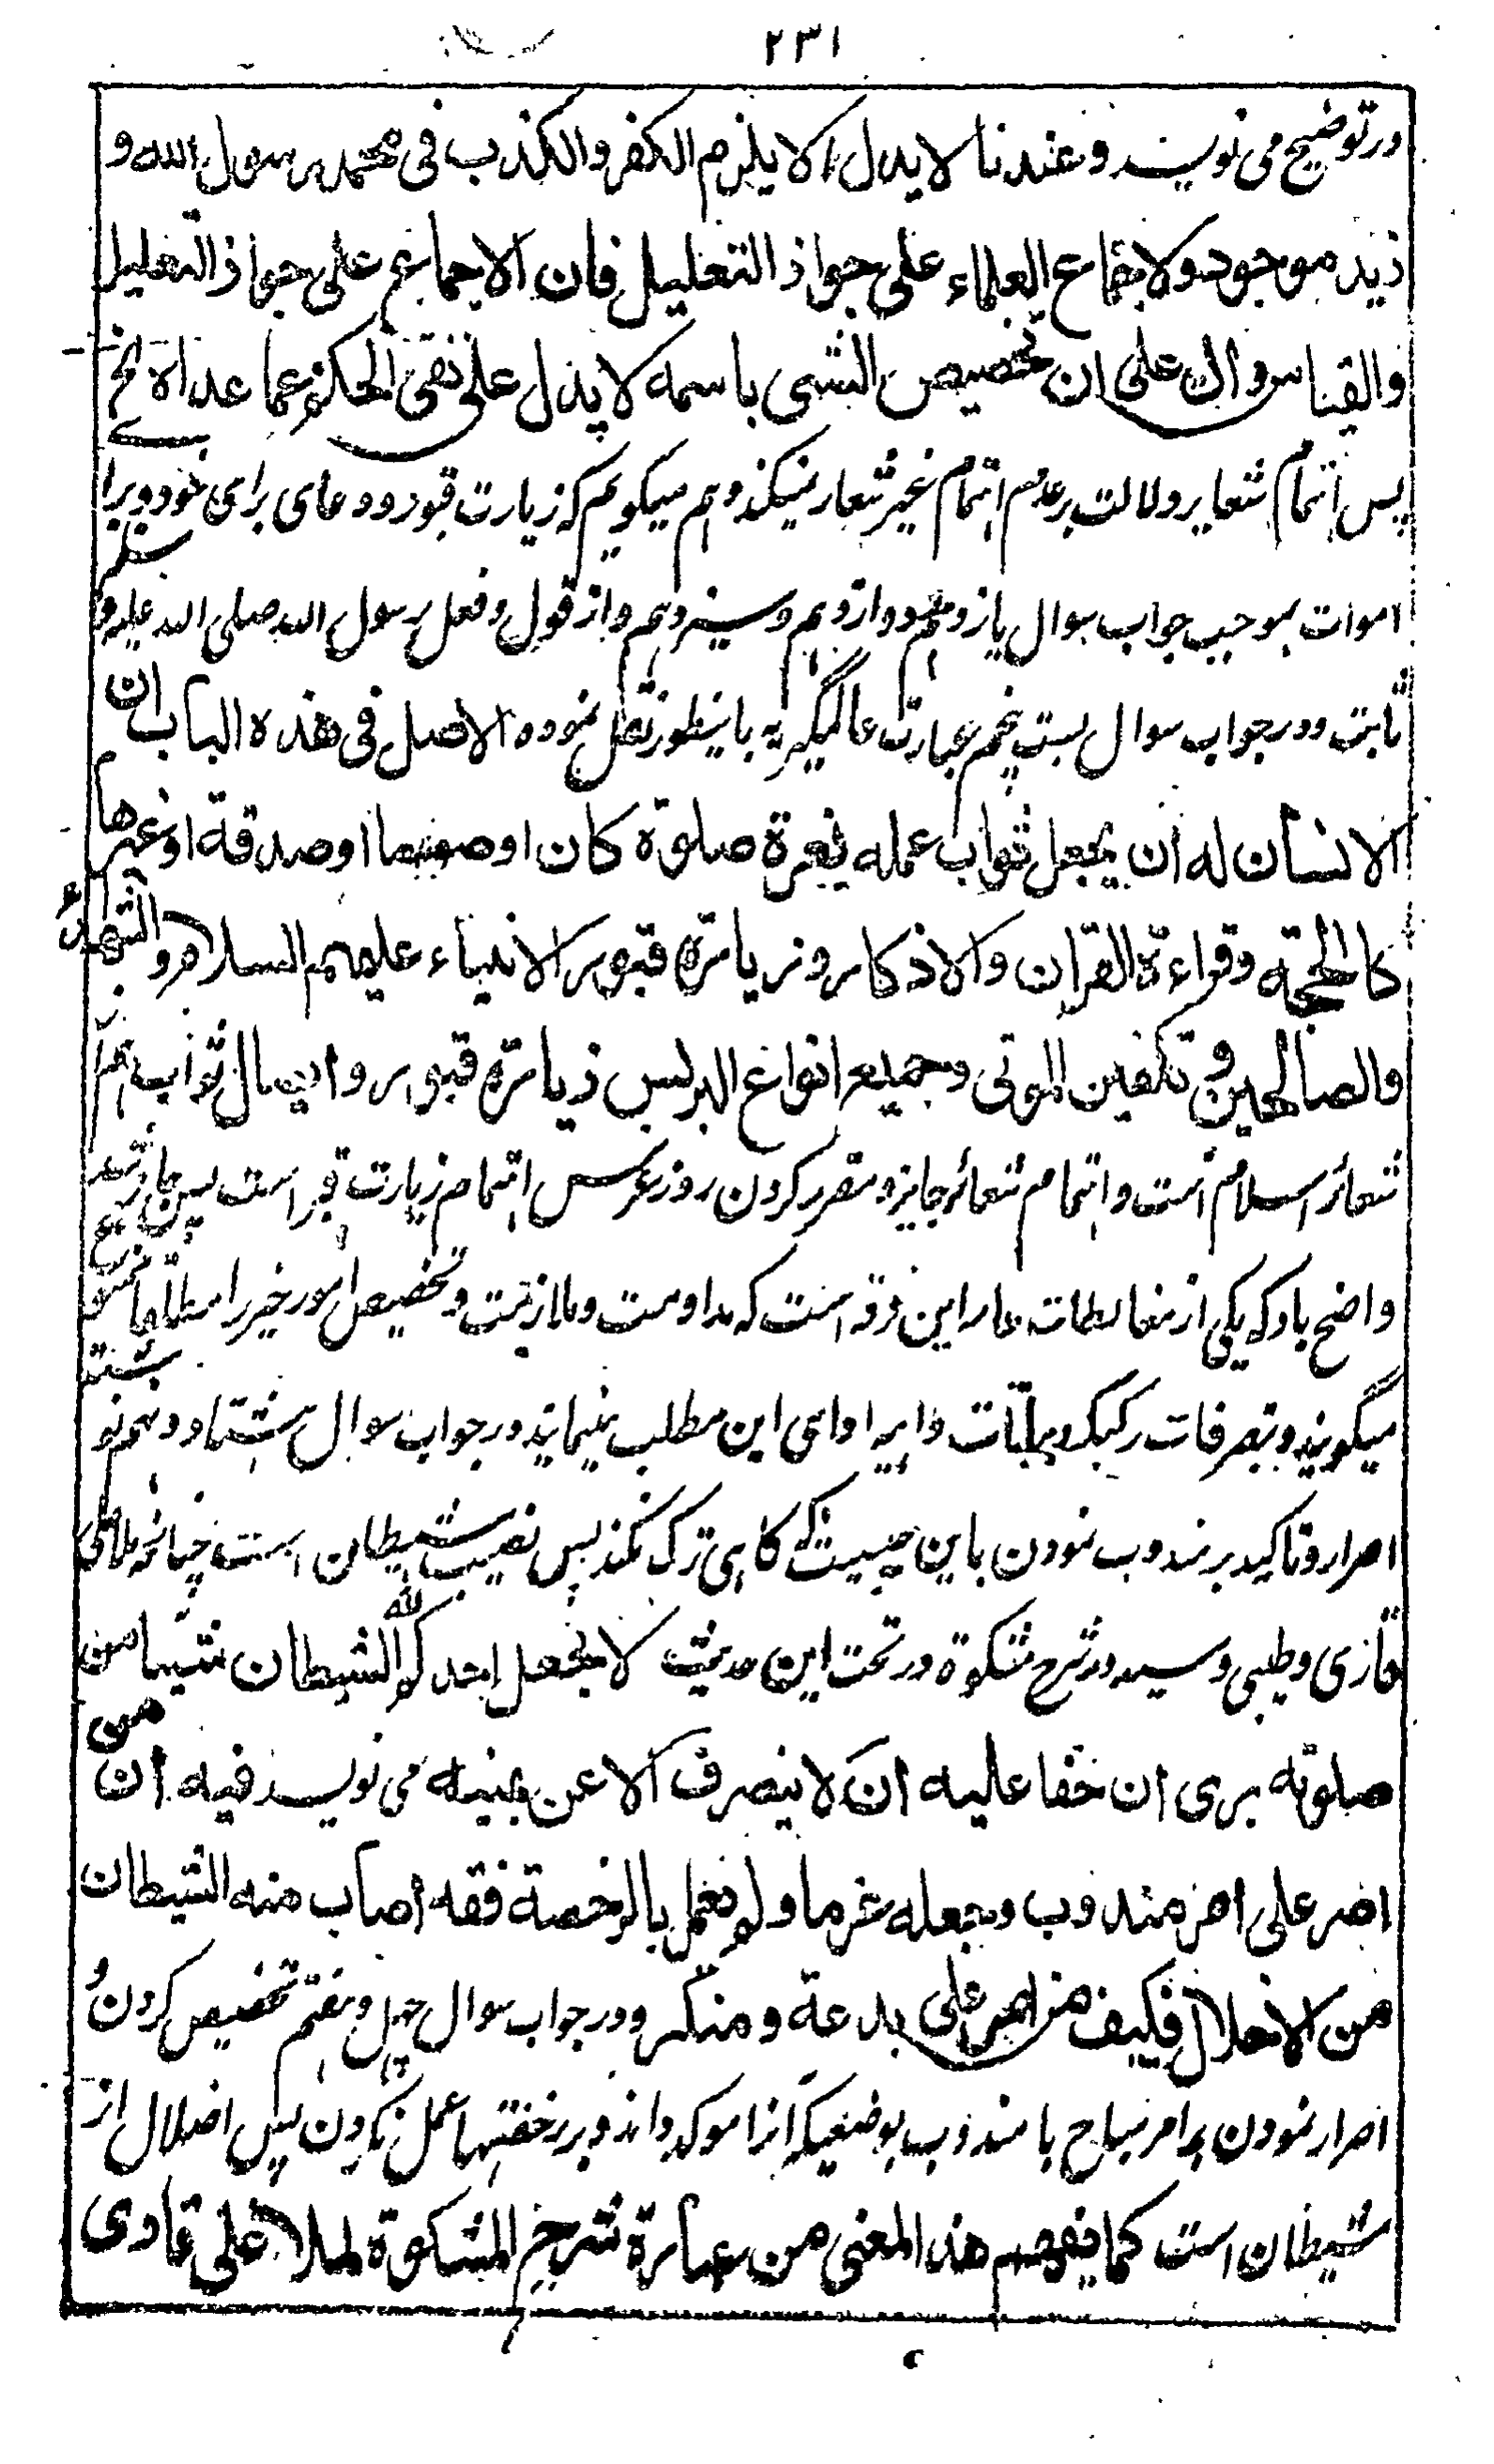 ۲۳۱
در توضیح می نویسد و عندنا لا یدل والا یلزم الکفر والکذب فی محمد رسول الله و
زید موجود ولاجماع العلماء علی جواز التعلیل فان الاجماع علی جواز التعلیل
والقیاس دال علی ان تخصیص الشی باسمه لا یدل علی نفی الحکم عما عداه الخ
پس اتمام شعایر دلالت بر عدم اتمام غیر شعار نمیکند و هم میگویم که زیارت قبور و دعای برای خود و برای
اموات بموجب جواب سوال یازدهم و دوازدهم و سیزدهم و از قول و فعل رسول الله صلی الله علیه و سلم
ثابت و در جواب سوال بست پنجم عبارت عالمگیریه باینطور نقل نموده الاصل فی هذه الباب ان
الانسان له ان یجعل ثواب عمله لغیره صلوة کان او صوما او صدقة او غیرها
کالحج و قراءة القران والاذکار و زیارة قبور الانبیاء علیهم السلام والشهداء
والصالحین و تکفین الموتی و جمیع انواع البر پس زیارة قبور و ایصال ثواب هم از
شعائر اسلام است و اتمام شعائر جایز و مقرر کردن روز عرس اتمام زیارت قبر است پس جایز شد
واضح باد که یکی از مغالطات عار این فرقه است که مداومت و ملازمت و تخصیص امور خیر را مطلقا ممنوع
میگویند و بتصرفات رکیک و بیانات واهیه ادای این مطلب مینمایند در جواب سوال هشتاد و نهم نوشته
اصرار و تاکید بر مندوب نمودن باین حیثیت که گاهی ترک نکند پس نصیب شیطان است چنانچه ملا علی
قاری و طیبی و سید در شرح مشکوة در تحت این حدیث لا یجعل احدکم للشیطان شیئا من
صلوته یری ان حقا علیه ان لا ینصرف الا عن یمینه می نویسد فیه ان من
اصر علی امر مندوب و جعله عزما و لم یعمل بالرخصة فقد اصاب منه الشیطان
من الاضلال فکیف من اصر علی بدعة و منکر و در جواب سوال چهل و هفتم تخصیص کردن و
اصرار نمودن بر امر مباح یا مندوب بوضعیکه آنرا موکد داند و بر رخصتها عمل نکردن پس اضلال از
شیطان است کما یفهم هذا المعنی من عبارة شرح المشکوة لملا علی قاری